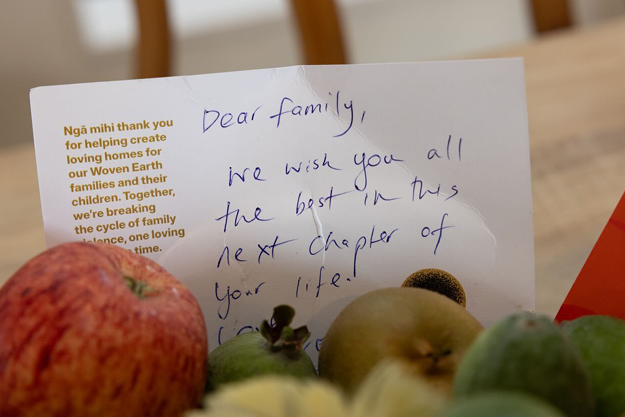 Ngā mihi thank you
for helping create
loving homes for
our Woven Earth
families and their
children. Together,
we're breaking
the cycle of family
one loving
time.
Dear family,
We wish you all
the best in this
next chapter of
your life.